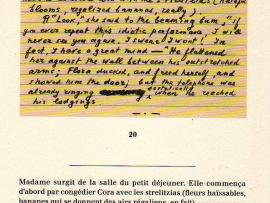 blooms, regalized bananas, really).
R "Look," she said to the beaming bum, "if
you ever repeat this idiotic performance, I will
never see you again. I swear I won't! In
fact, I have a great mind —" He flattened
her against the wall between his outstretched
arms; Flora ducked, and freed herself, and
showed him the door; but the telephone was
already ringing ecstatically when he reached
his lodgings.
20
Madame surgit de la salle du petit déjeuner. Elle commença
d'abord par congédier Cora avec les strelitzias (fleurs haïssables,
bananes qui se donnent des airs régaliens, en fait).